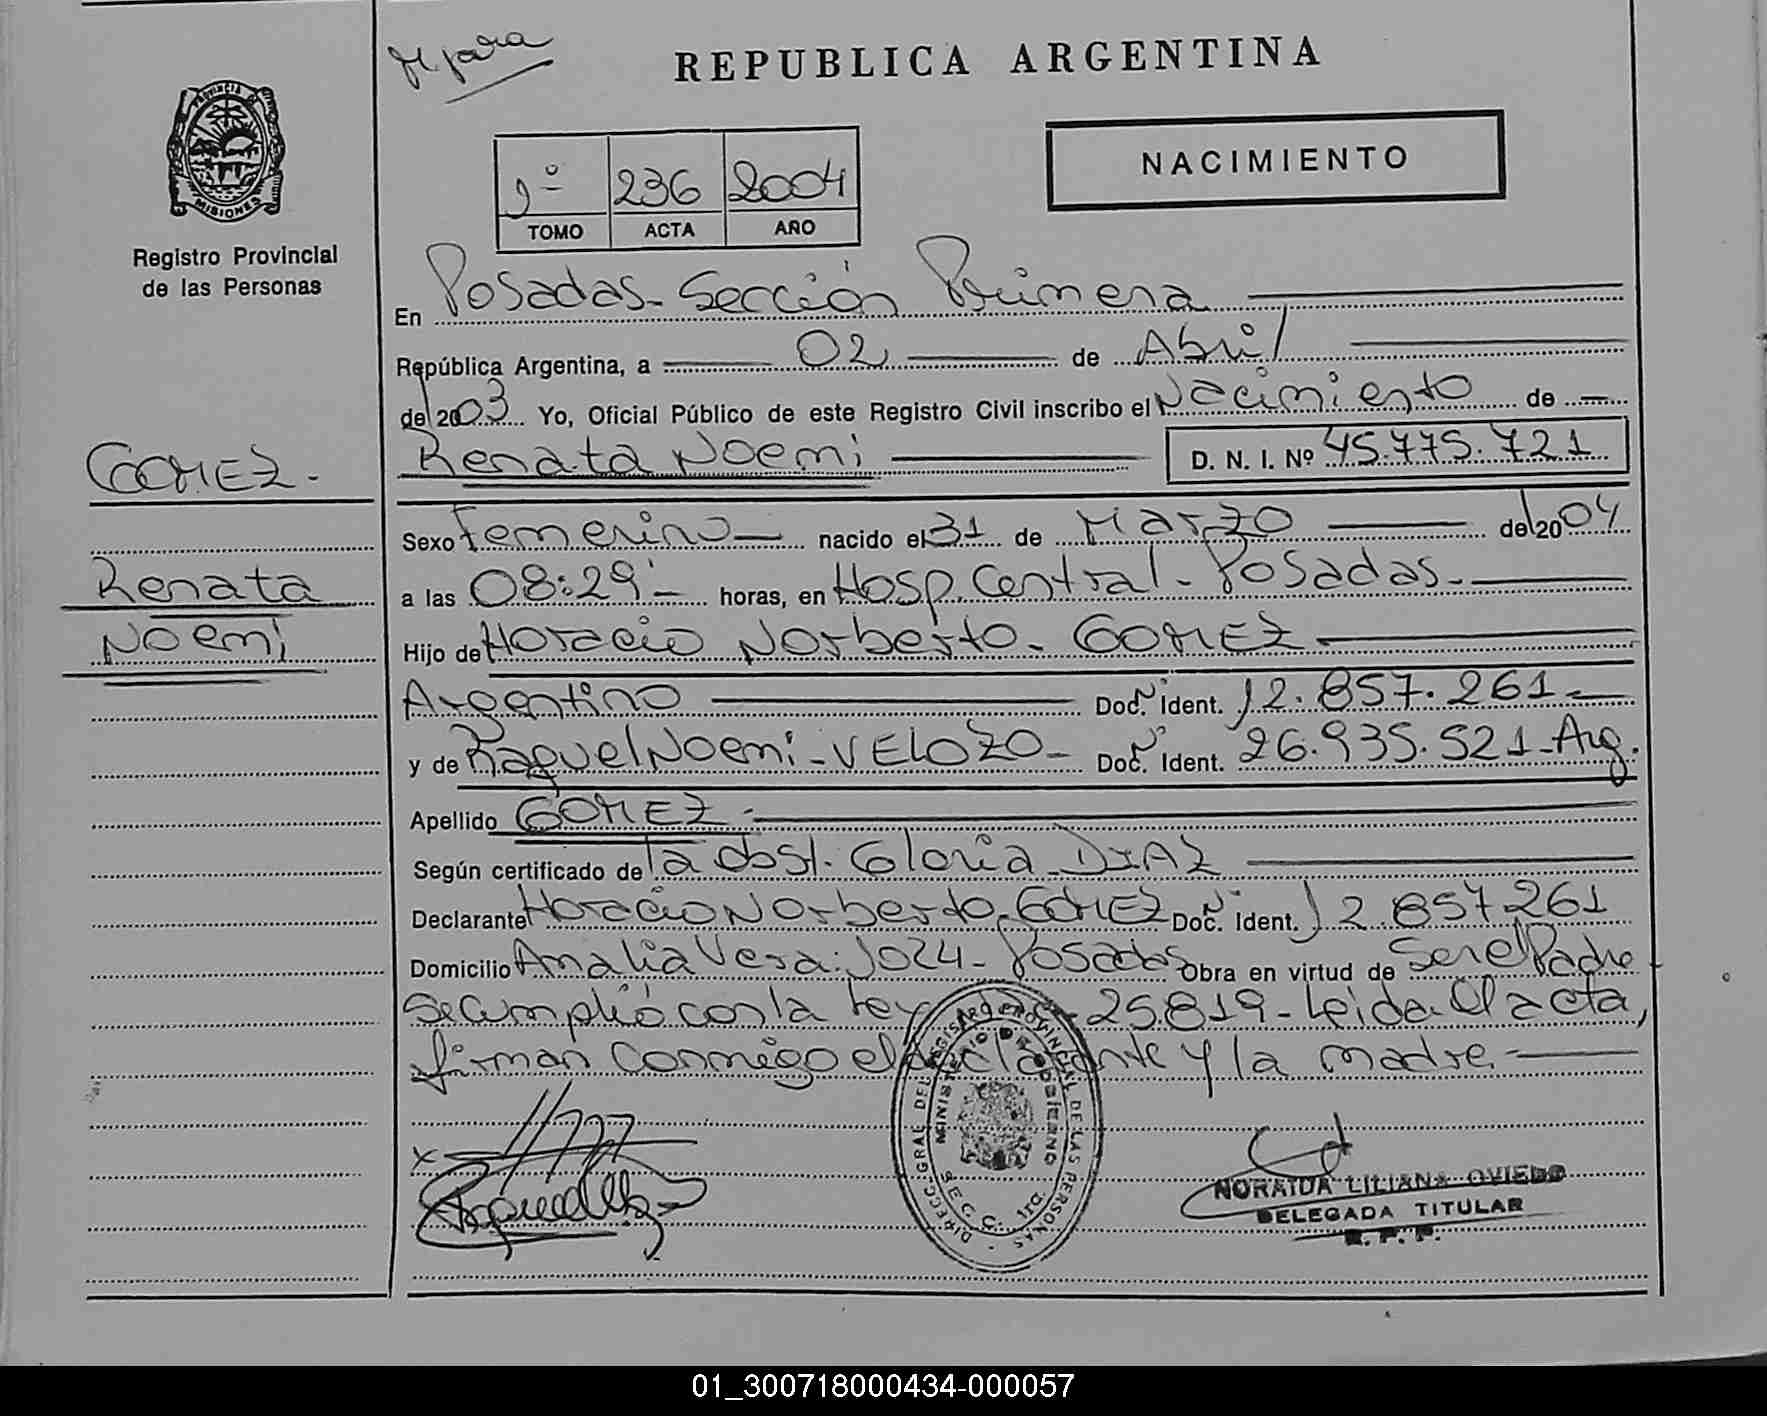 REPUBLICA ARGENTINA
NACIMIENTO
PROVINCIA DE MISIONES
Registro Provincial
de las Personas
1º 236 2004
TOMO ACTA AÑO
En Posadas - Sección Primera
República Argentina, a 02 de Abril
del 2003 Yo, Oficial Público de este Registro Civil inscribo el Nacimiento de
Renata Noemi D. N. I. Nº 45.775.721
GOMEZ.-
Renata
Noemi
Sexo Femenino nacido el 31 de Marzo del 2004
a las 08:29'- horas, en Hosp. Central - Posadas.-
Hijo de Horacio Norberto - GOMEZ
Argentino Doc. Ident. 12.857.261-
y de Raquel Noemi - VELOZO - Doc. Ident. 26.935.521-Arg.
Apellido GOMEZ.-
Según certificado de la obst. Gloria DIAZ
Declarante Horacio Norberto GOMEZ Doc. Ident. 12.857.261
Domicilio Amalia Vera: 1024 - Posadas Obra en virtud de Ser el Padre
Se cumplió con la Ley 25.819 - Leida el acta,
firman conmigo el declarante y la madre.-
DIRECC. GRAL. DEL REGISTRO PROVINCIAL DE LAS PERSONAS
MINISTERIO DE GOBIERNO
SECC. 1ra.
NORAIDA LILIANA OVIEDO
DELEGADA TITULAR
R. P. P.
01_300718000434-000057